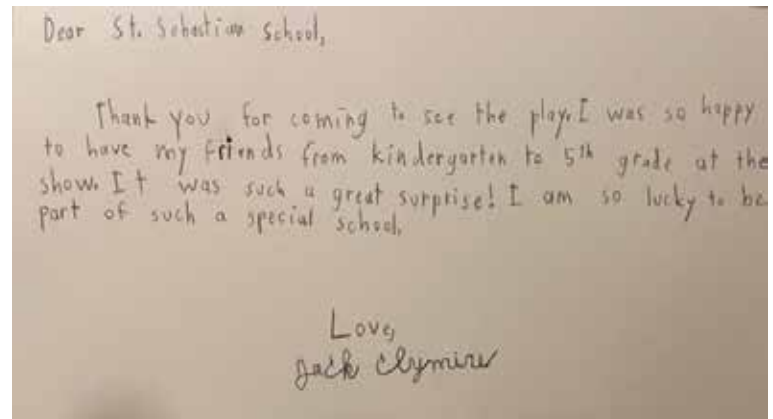 Dear St. Sebastian School,
Thank you for coming to see the play. I was so happy
to have my friends from kindergarten to 5th grade at the
show. It was such a great surprise! I am so lucky to be
part of such a special school.
Love,
Jack Clymire